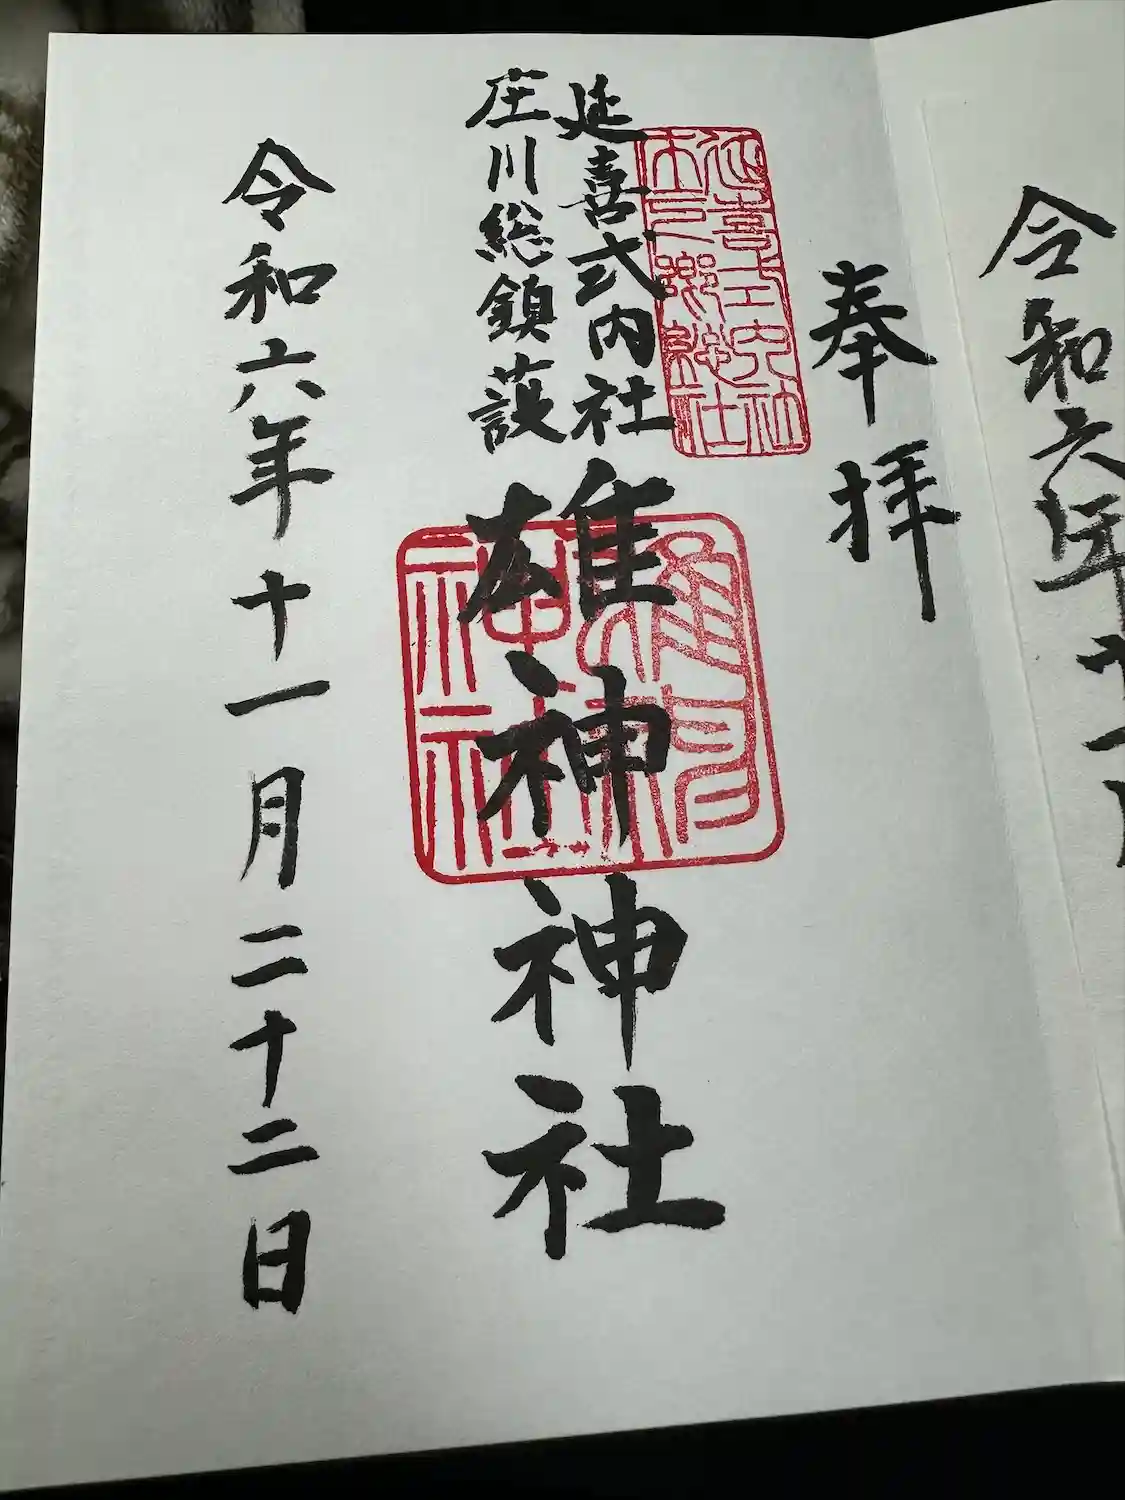 令和六年十一月
奉拝
延喜式内社
庄川総鎮護
雄神神社
令和六年十一月二十二日
延喜式内社
雄神
神社